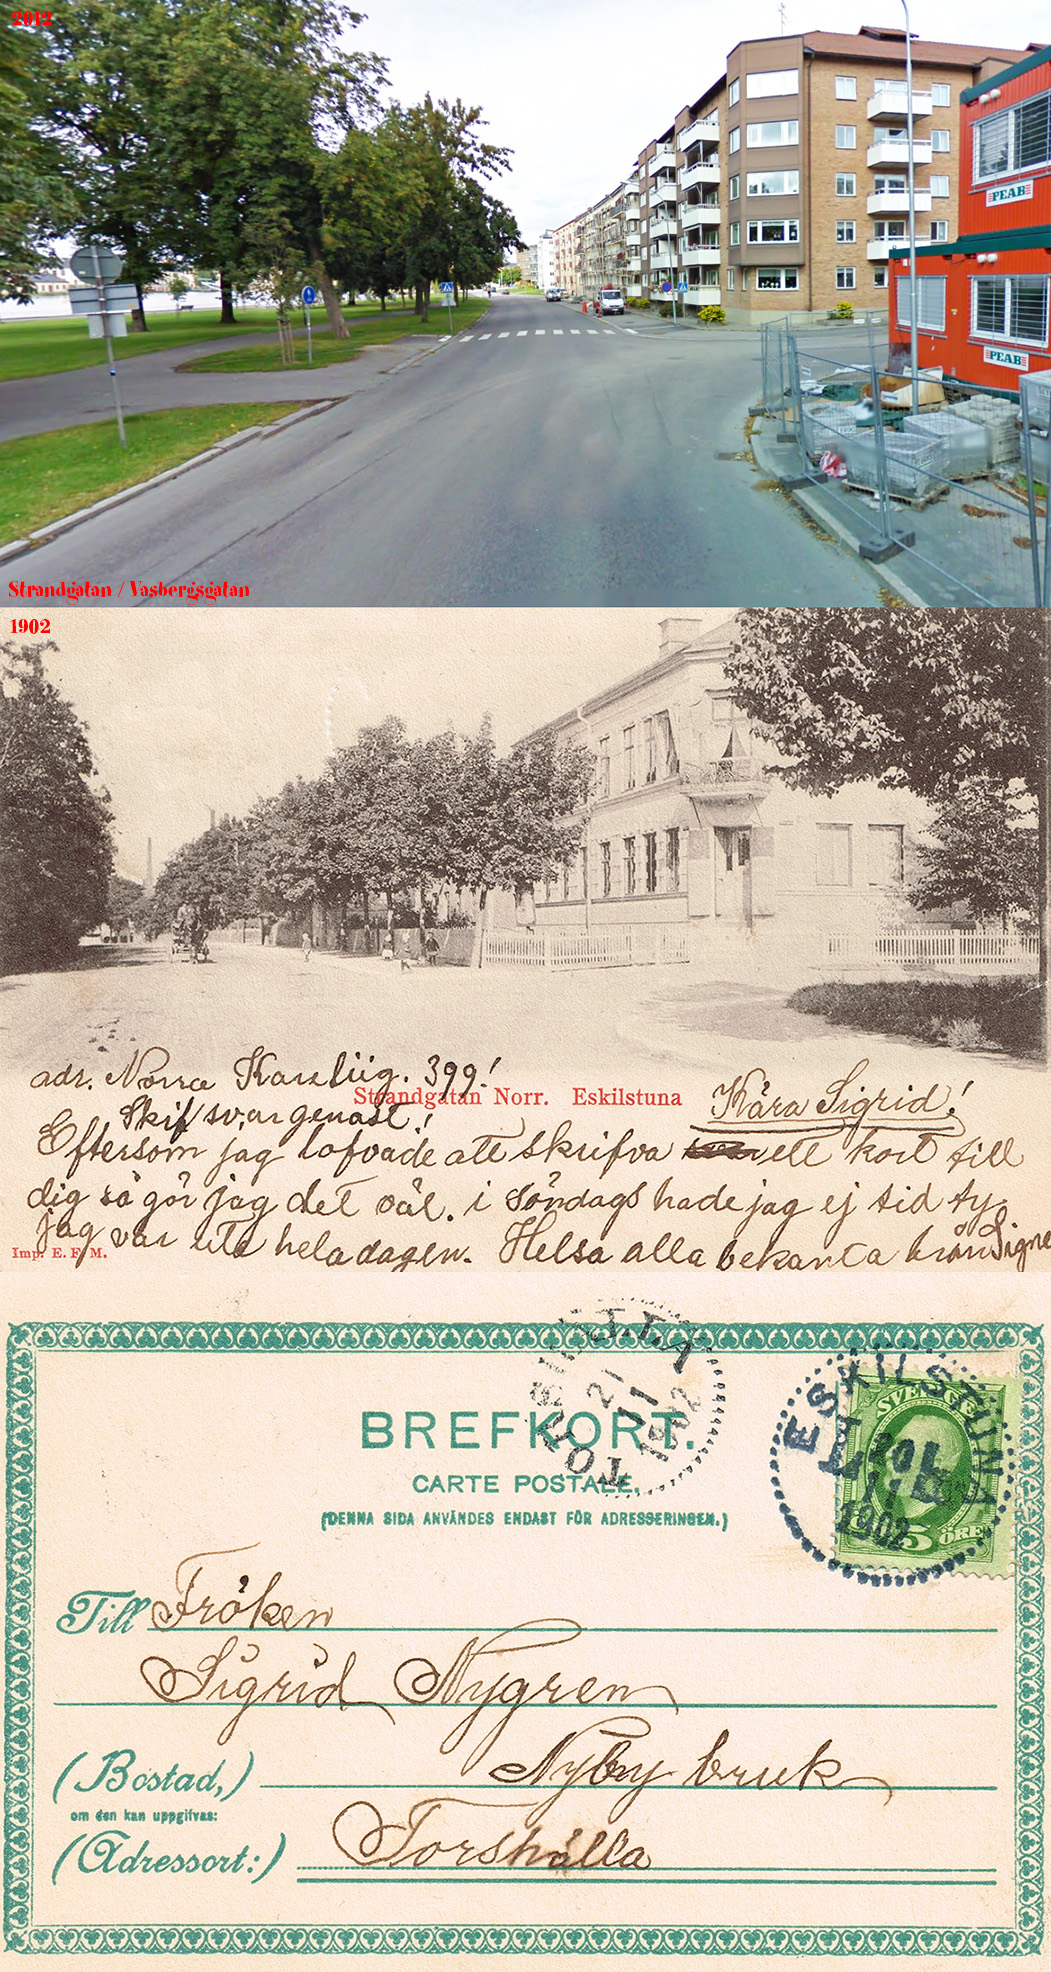 2012
PEAB
PEAB
Strandgatan / Vasbergsgatan
1902
adr. Norra 399!
Strandgatan Norr. Eskilstuna
Kära Sigrid!
Skif svar genast!
Eftersom jag lofvade att skrifva ett kort till
dig så gör jag det väl. i Söndags hade jag ej tid ty
jag var ute hela dagen. Helsa alla bekanta från Signe
Imp. E. F. M.
BREFKORT.
CARTE POSTALE.
(DENNA SIDA ANVÄNDES ENDAST FÖR ADRESSERINGEN.)
TORSHÄLLA
21
11
1902
ESKILSTUNA
1902
SVERIGE
5 ÖRE
Till Fröken
Sigrid Nygren
(Bostad,) Nyby bruk
om den kan uppgifvas:
(Adressort:) Torshälla